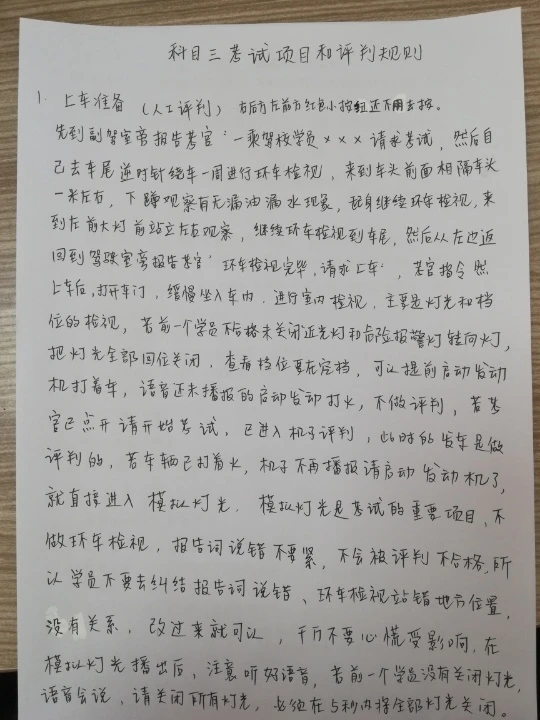 科目三考试项目和评判规则
1. 上车准备（人工评判）右后方左前方红色小按钮还不用去按。
先到副驾室旁报告考官：一乘驾校学员×××请求考试，然后自
己去车尾逆时针绕车一周进行环车检视，来到车头前面相隔车头
一米左右，下蹲观察有无漏油漏水现象，起身继续环车检视，来
到左前大灯前站立左右观察，继续环车检视到车尾，然后从左边返
回到驾驶室旁报告考官：环车检视完毕，请求上车；考官指令然
上车后，打开车门，缓慢坐入车内，进行室内检视，主要是灯光和档
位的检视，若前一个学员不合格未关闭近光灯和危险报警灯转向灯，
把灯光全部回位关闭，查看档位要在空档，可以提前启动发动
机打着车，语音还未播报的启动发动打火，不做评判，若考
官已点开请开始考试，已进入机子评判，此时的发车是做
评判的，若车辆已打着火，机子不再播报请启动发动机了，
就直接进入模拟灯光．模拟灯光是考试的重要项目，不
做环车检视，报告词说错不要紧，不会被评判不合格，所
以学员不要去纠结报告词说错、环车检视站错地方位置，
没有关系，改过来就可以，千万不要心慌受影响，在
模拟灯光播出后，注意听好语音，若前一个学员没有关闭灯光，
语音会说，请关闭所有灯光，必须在5秒内将全部灯光关闭。